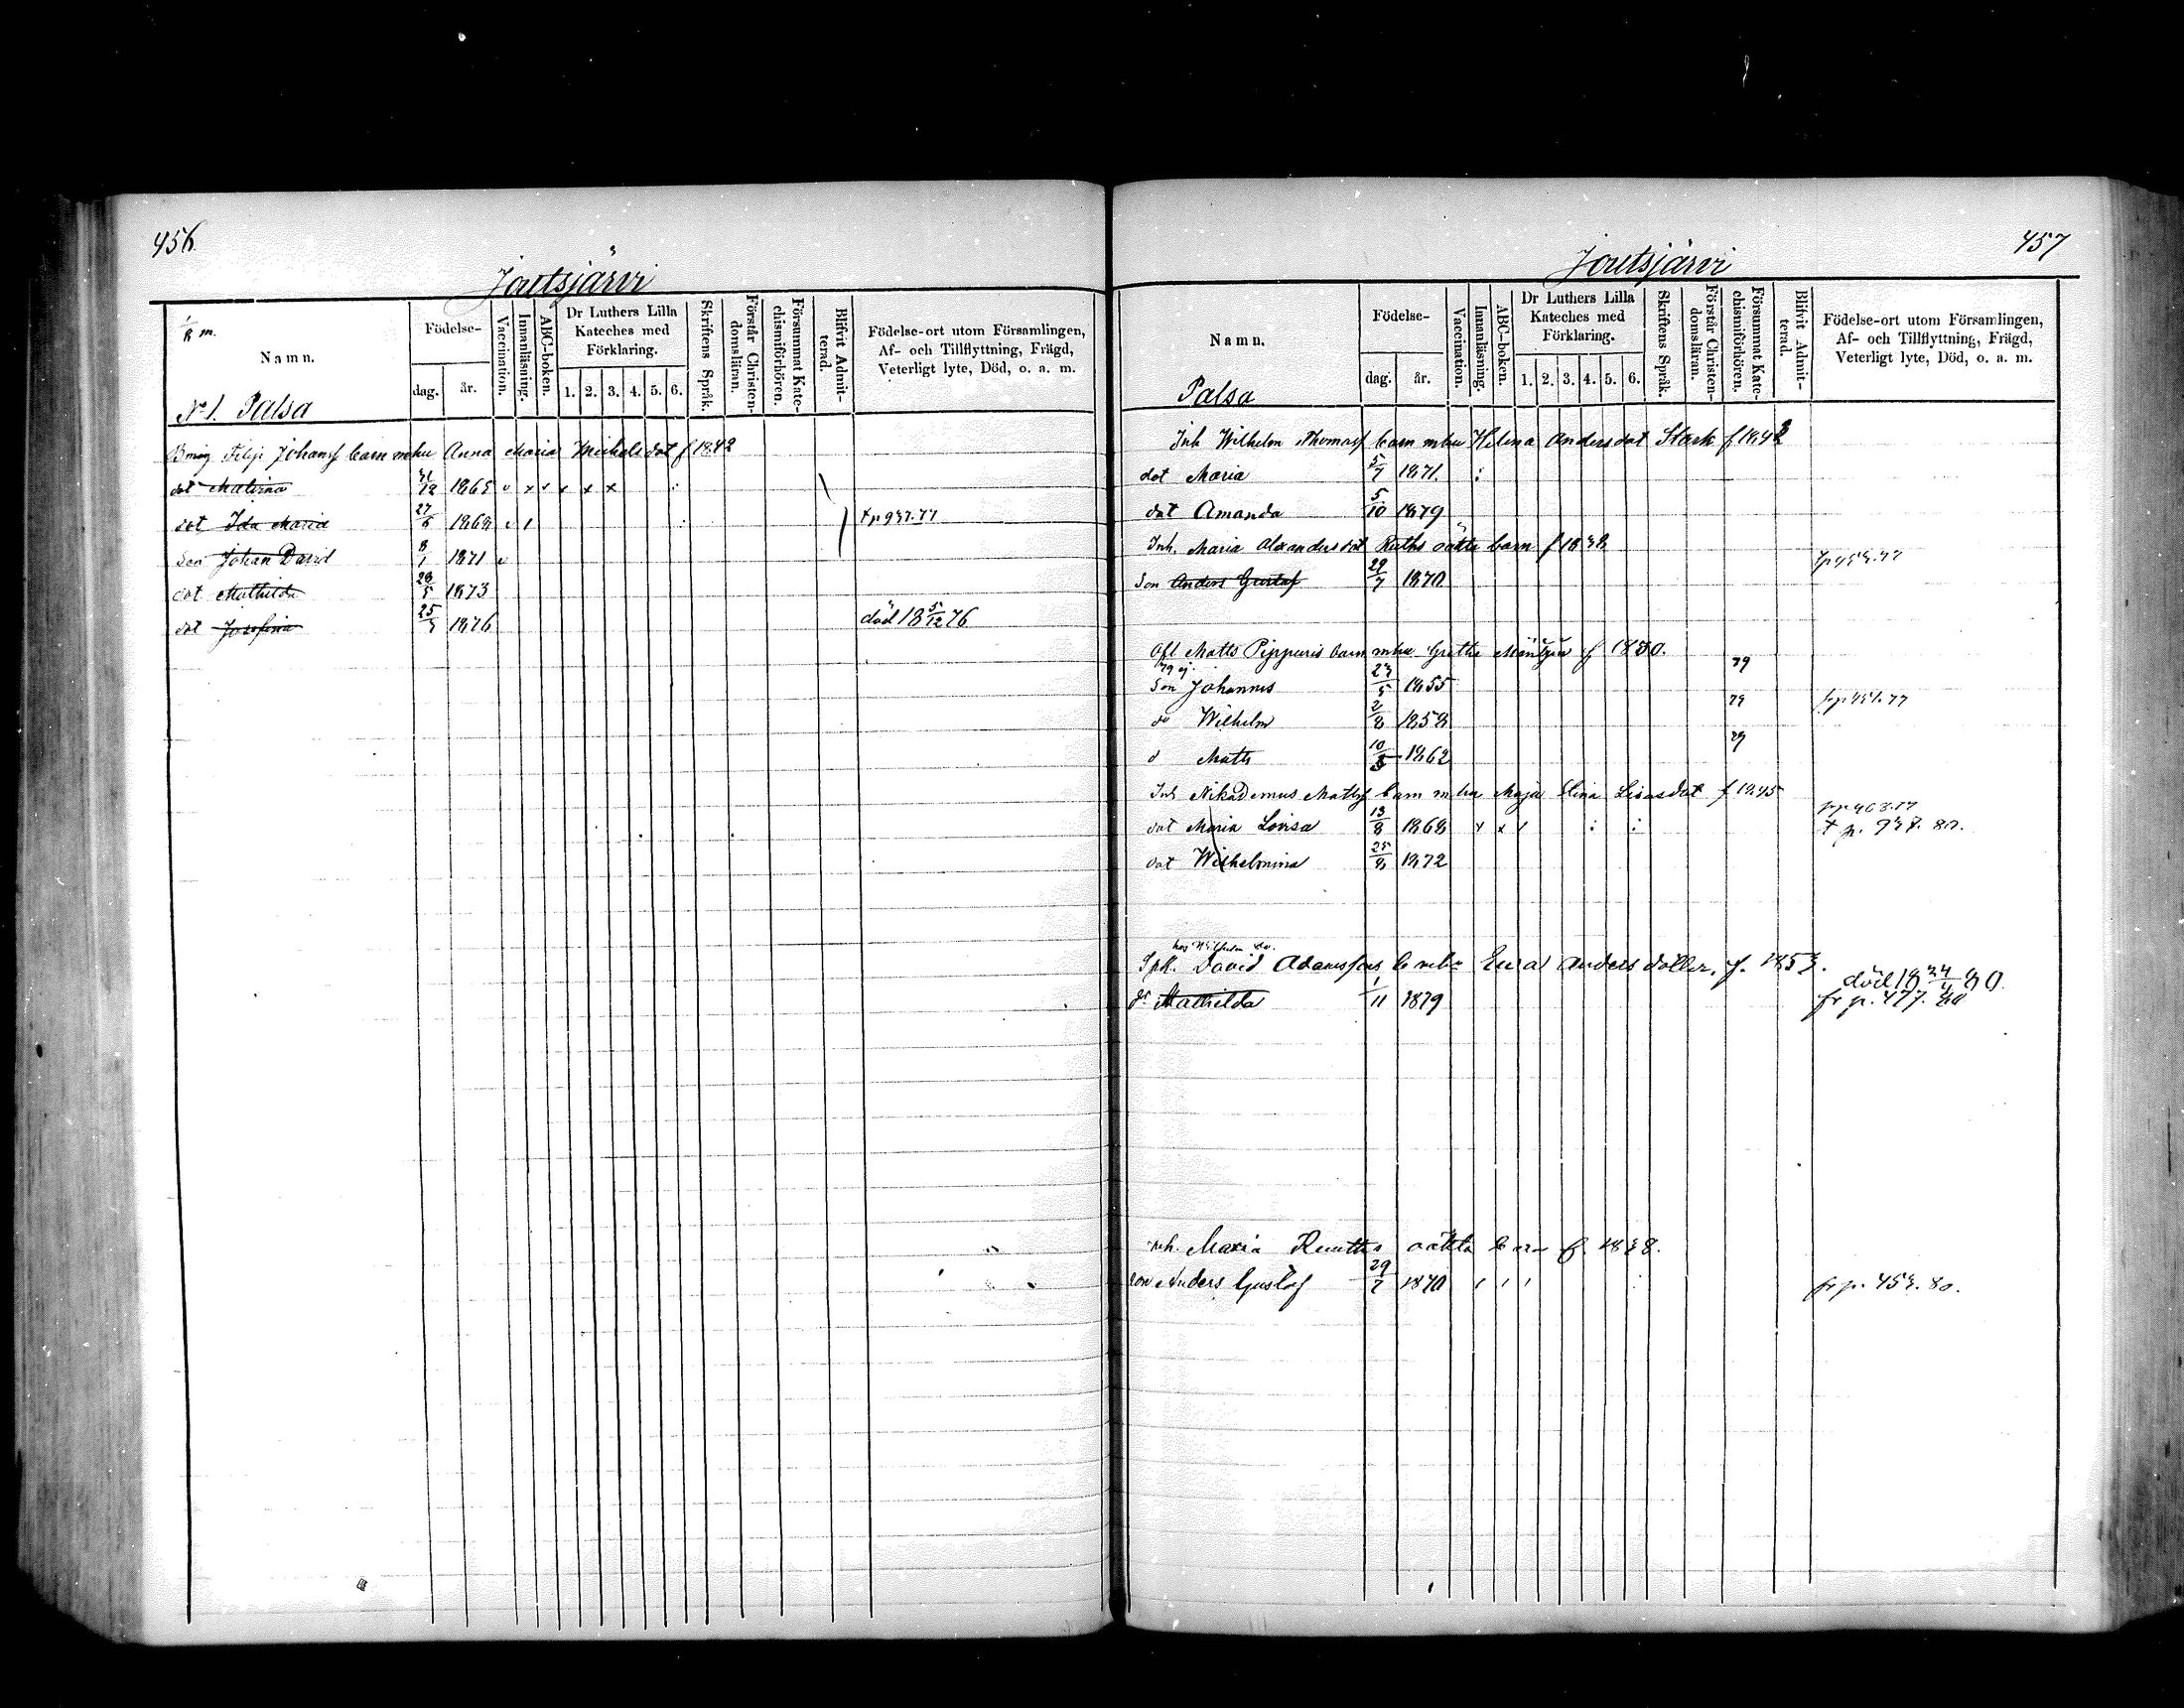 456.
Joutsjärvi
Namn.
Födelse-
dag.
år.
Vaccination.
Innanläsning.
ABC-boken.
Dr Luthers Lilla
Kateches med
Förklaring.
1. 2. 3. 4. 5. 6.
Skriftens Språk.
Förstår Christen-
domsläran.
Försummat Kate-
chismiförhören.
Blifvit Admit-
terad.
Födelse-ort utom Församlingen,
Af- och Tillflyttning, Frägd,
Veterligt lyte, Död, o. a. m.
No 1. Palsa
Filip Johansf barn mhu Anna Maria Michelsdot f 1842
dot Malvina 1865 v x x x x x
dot Ida Maria 27/6 1868 937.77
Son Johan David 8/1 1871 v
dot Mathilda 28/5 1873
dot Josefina 1876 död 18 5/12 76
457
Joutsjärvi
Namn.
Födelse-
dag.
år.
Vaccination.
Innanläsning.
ABC-boken.
Dr Luthers Lilla
Kateches med
Förklaring.
1. 2. 3. 4. 5. 6.
Skriftens Språk.
Förstår Christen-
domsläran.
Försummat Kate-
chismiförhören.
Blifvit Admit-
terad.
Födelse-ort utom Församlingen,
Af- och Tillflyttning, Frägd,
Veterligt lyte, Död, o. a. m.
Palsa
Inh Wilhelm Thomasf barn mhu Helena Andersdot Stark
dot Maria 5/7 1871.
dot Amanda 5/10 1879
Inh. Maria Alexandersdot Ruths oäkta barn f 1838
Son Anders Gustaf 29/7 1870
Matts Pippuris barn mhu Gretha f 1830.
Son Johannes 23/5 1855 79
do Wilhelm 2/8 1858 79
d Matts 1862 79
Inh Nikodemus Mattsf barn mhu Maja Elina f 1845
dot Maria Lovisa 13/8 1868 x x p. 937. 80.
dot Wilhelmina 25/8 1872
David Adamssons Eva Andersdotter, f. 1853.
Mathilda 1/11 1879 fr p. 477. 80
Inh. Maria Ruuths oäkta barn f. 1838.
son Anders Gustaf 29/7 1870 fr p. 453. 80.